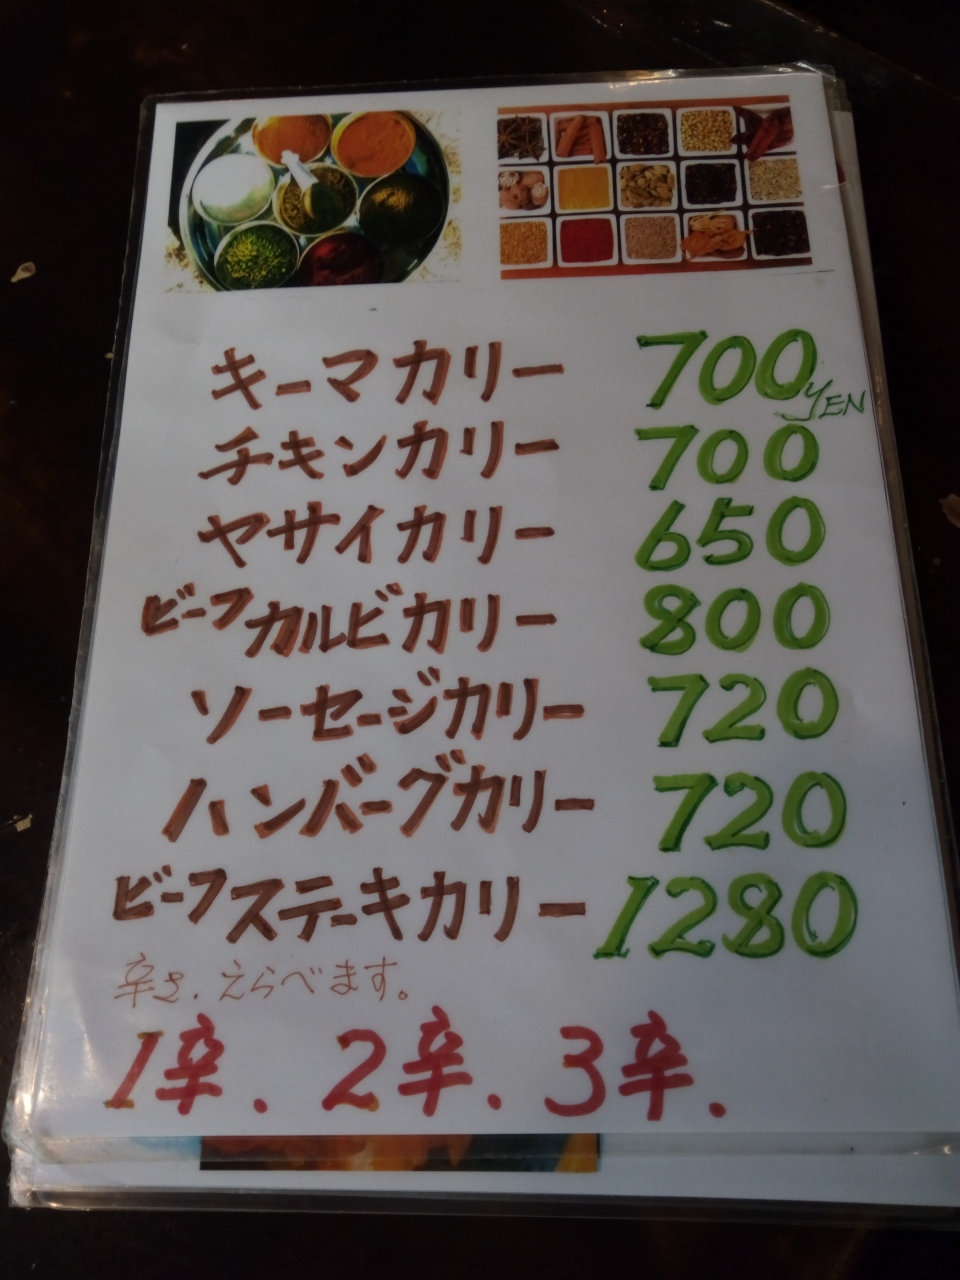 キーマカリー 700 YEN
チキンカリー 700
ヤサイカリー 650
ビーフカルビカリー 800
ソーセージカリー 720
ハンバーグカリー 720
ビーフステーキカリー 1280
辛さ.えらべます。
1辛. 2辛. 3辛.